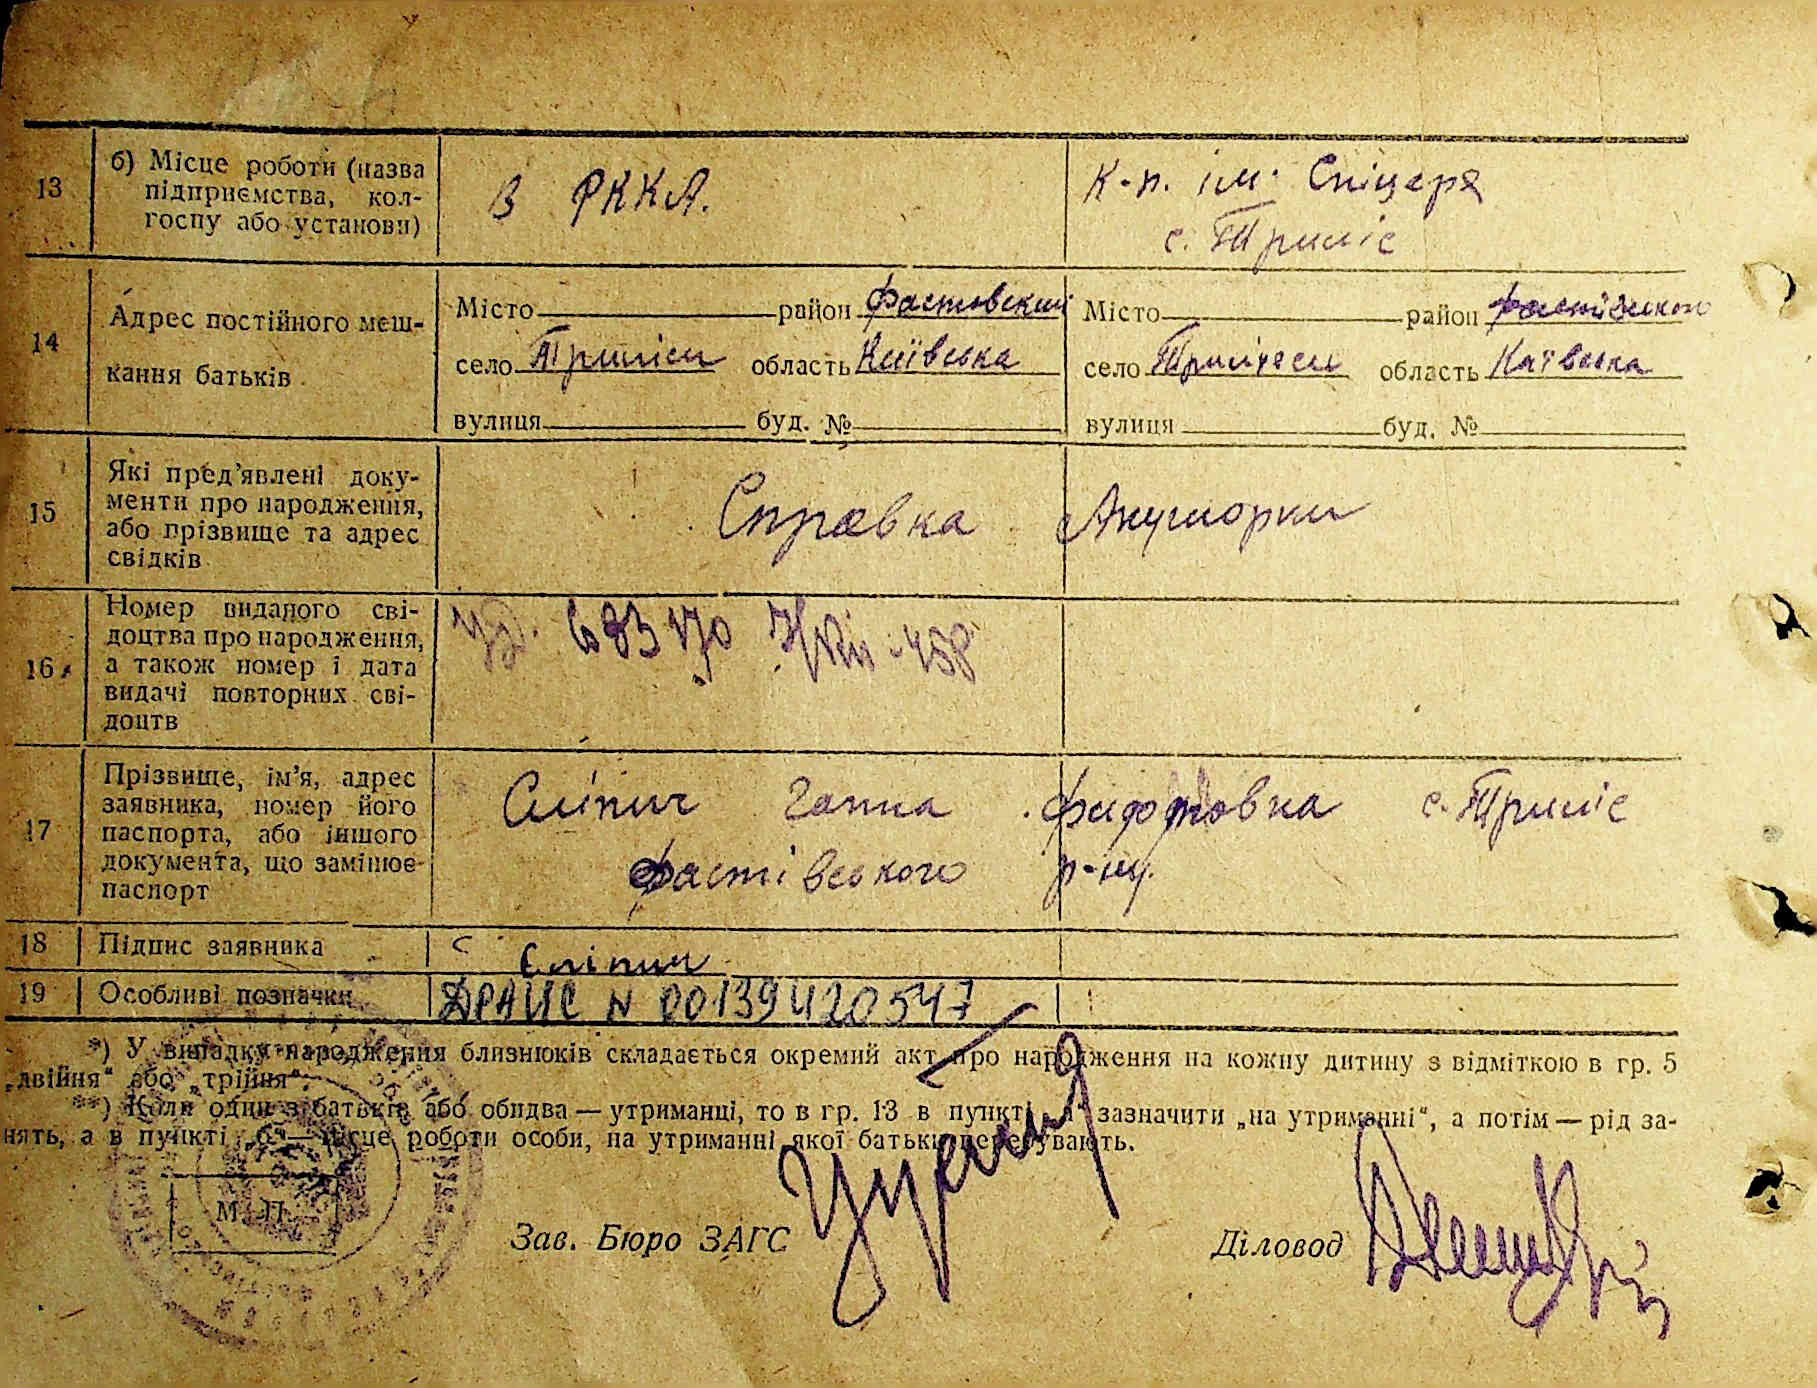 13
б) Місце роботи (назва
підприємства, кол-
госпу або установи)
В РККА.
К-п. ім. Спіцера
с. Триліс
14
Адрес постійного меш-
кання батьків
Місто район Фастовский
село Триліси область Київська
вулиця буд. №
Місто район Фастівського
село область Київська
вулиця буд. №
15
Які пред’явлені доку-
менти про народження,
або прізвище та адрес
свідків
Справка Акушорки
16
Номер виданого сві-
доцтва про народження,
а також номер і дата
видачі повторних сві-
доцтв
17
Прізвище, ім’я, адрес
заявника, номер його
паспорта, або іншого
документа, що замінює
паспорт
Сліпич Ганна с. Триліс
Фастівського р-ну.
18
Підпис заявника
Сліпич
19
Особливі позначки
ДРАЦС N 00139420547
*) У випадку народження близнюків складається окремий акт про народження на кожну дитину з відміткою в гр. 5
„двійня“ або „трійня“.
**) Коли один з батьків або обидва — утриманці, то в гр. 13 в пункті „а“ зазначити „на утриманні“, а потім — рід за-
нять, а в пункті „б“ — місце роботи особи, на утриманні якої батьки перебувають.
М. П.
Зав. Бюро ЗАГС
Діловод